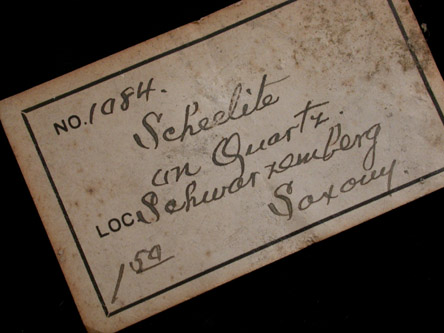 NO. 1084.
Scheelite
on Quartz.
LOC. Schwarzemberg
Saxony.
1 50